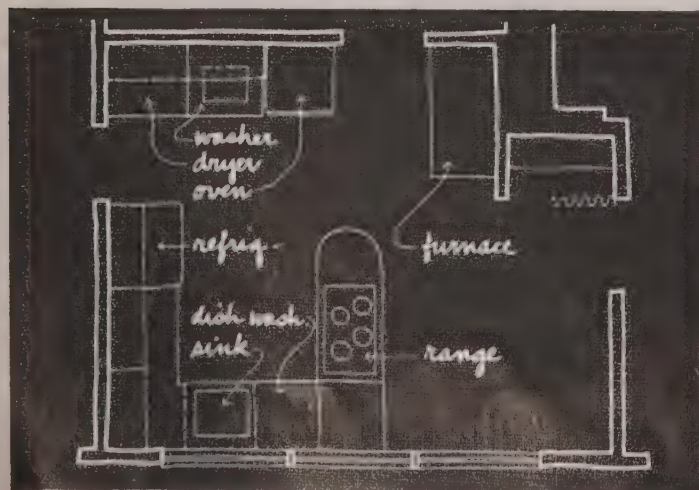 washer
dryer
oven
refrig
furnace
dish wash
sink
range